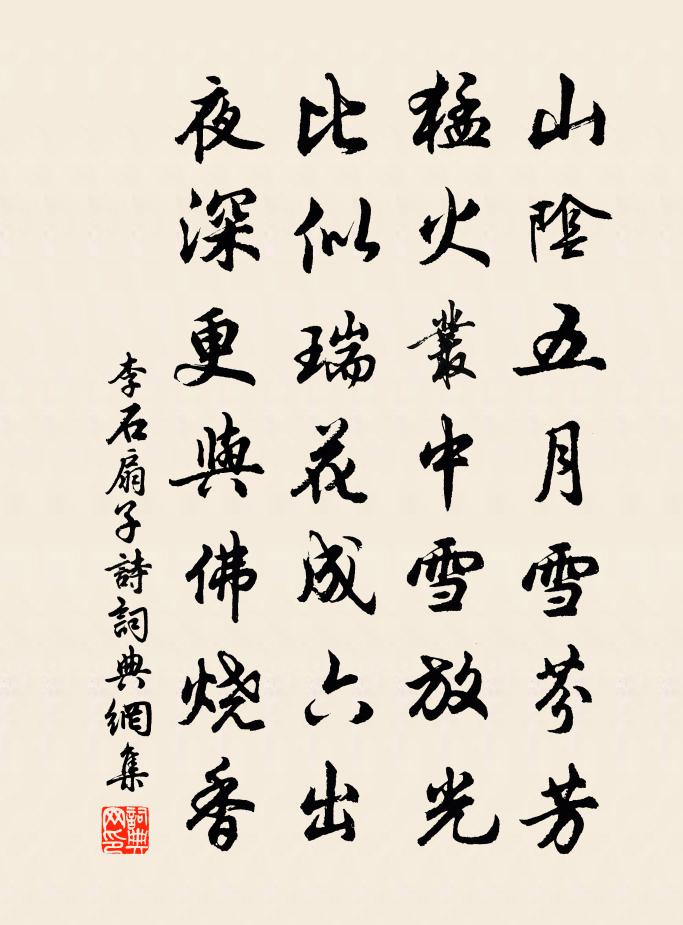 山陰五月雪芬芳
猛火叢中雪放光
比似瑞花成六出
夜深更與佛燒香
李石扇子詩詞典網集
詞典網印